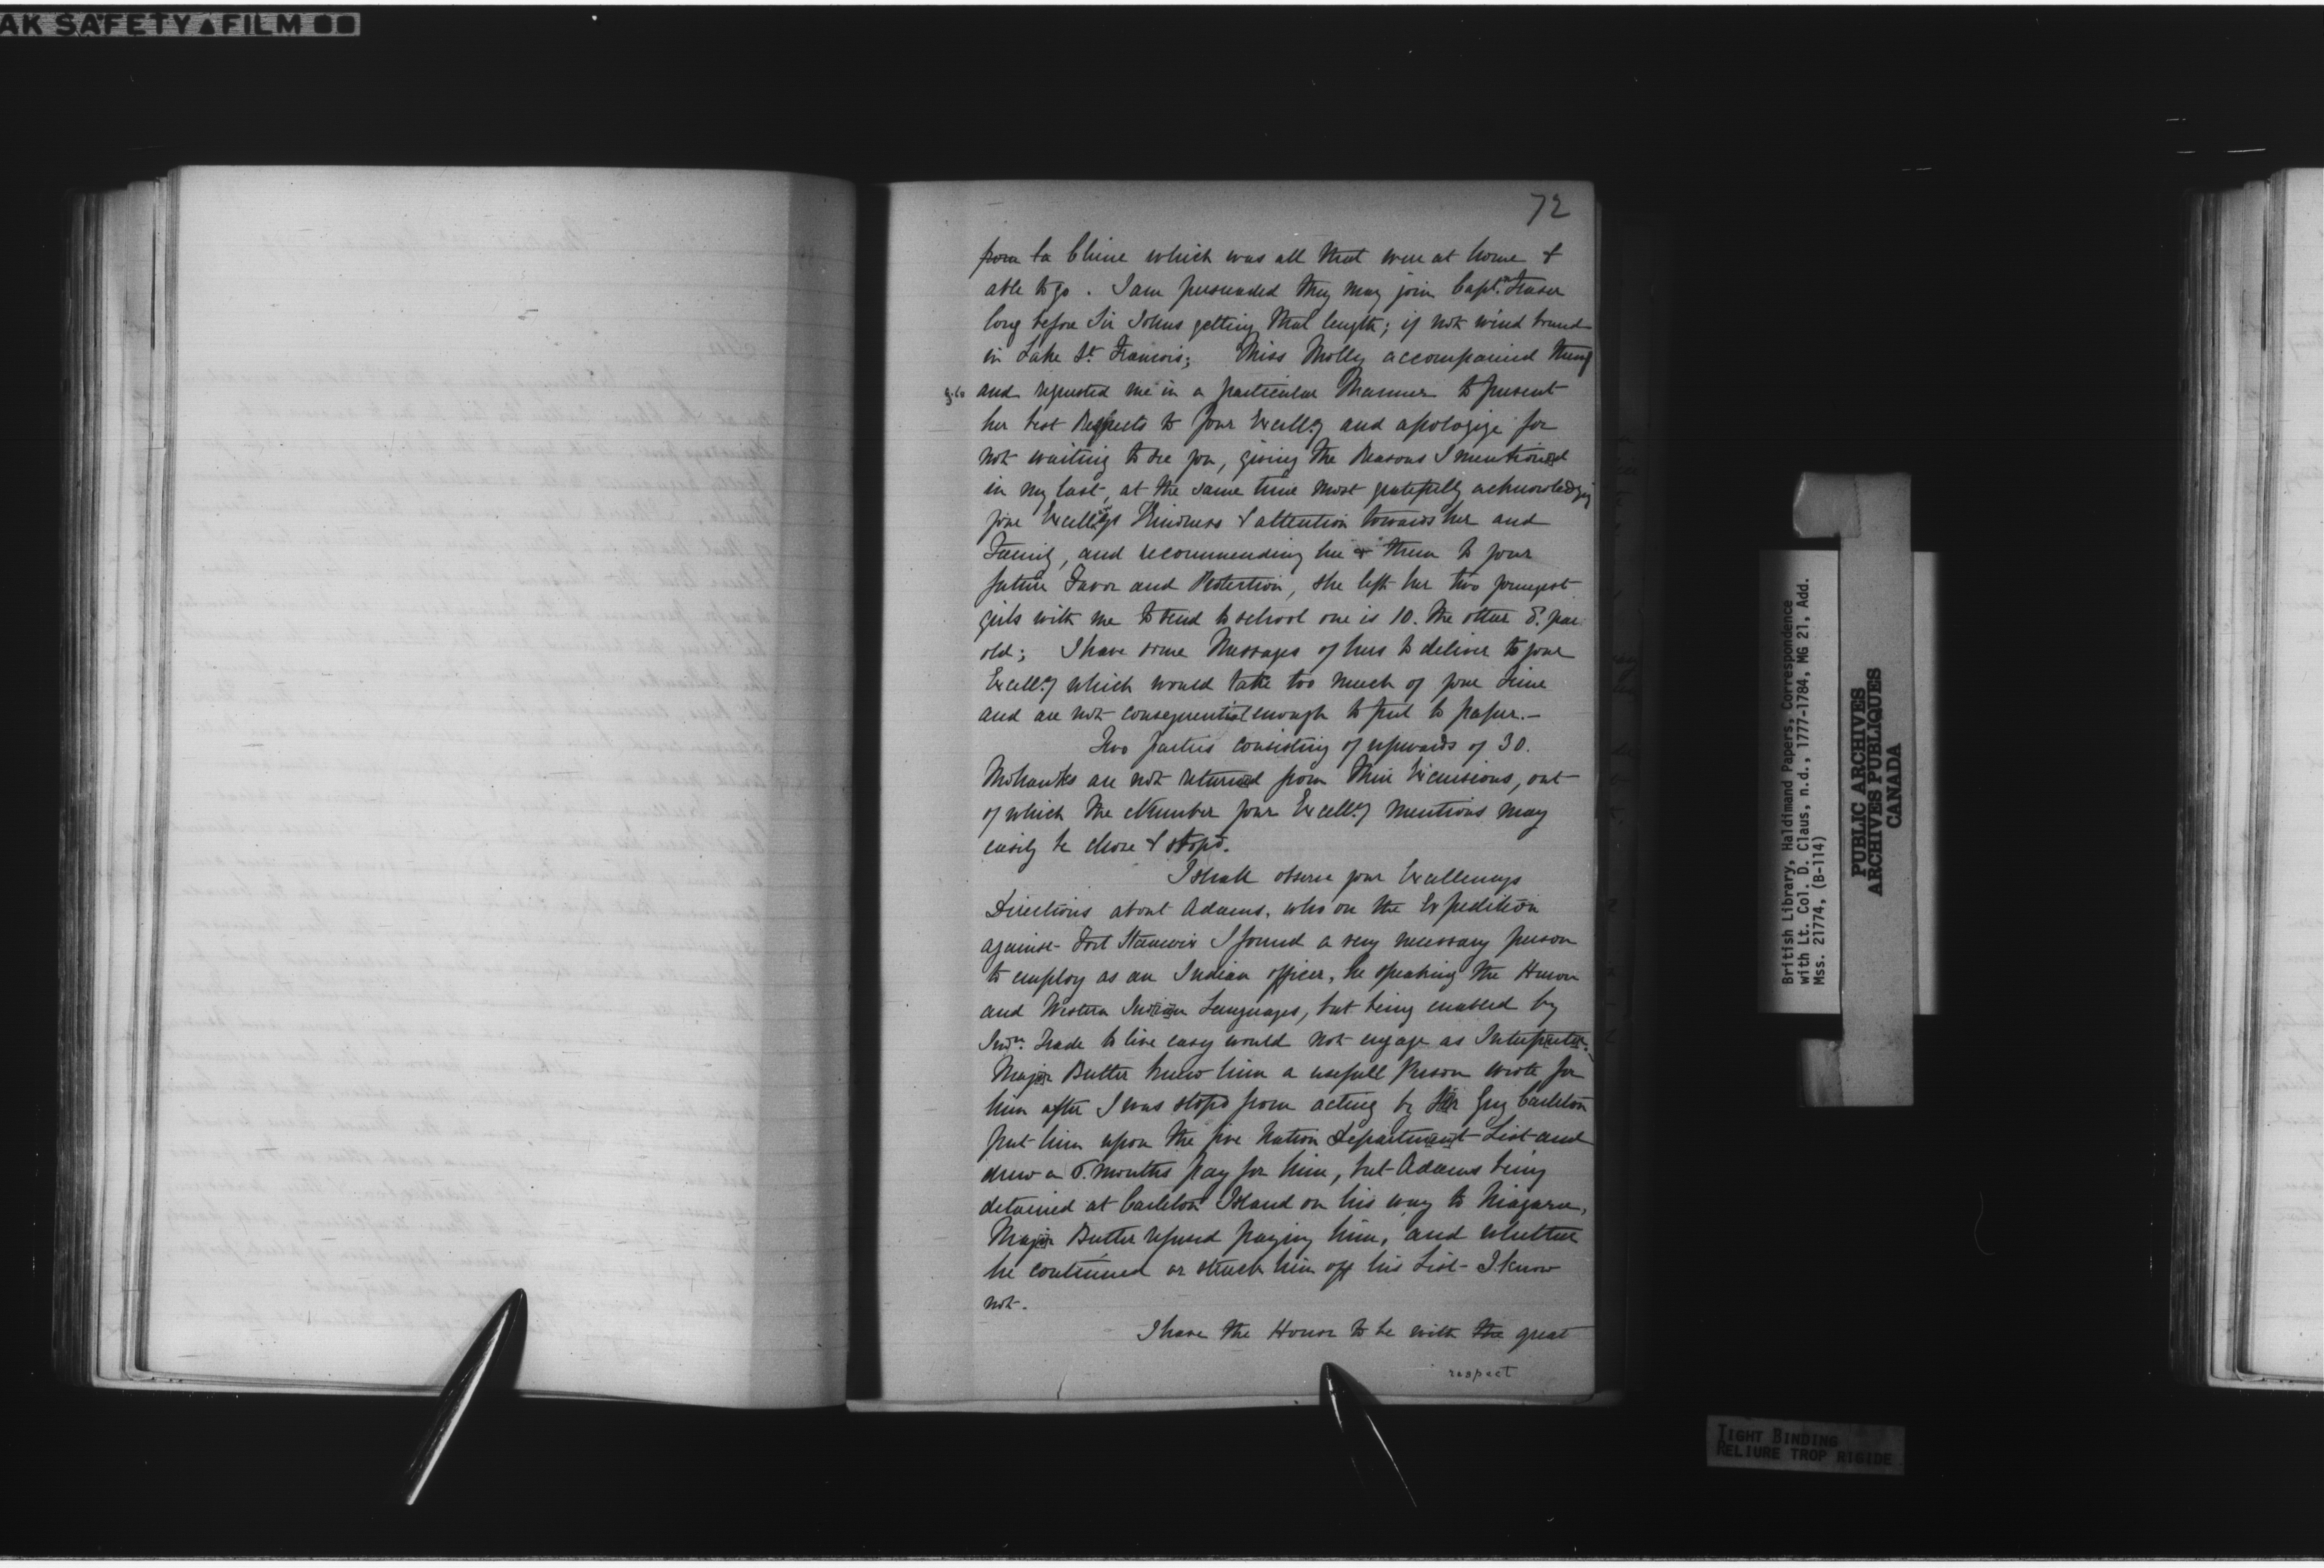 AK SAFETY▲FILM ●■
72
from La Chine which was all that were at home &
able to go. I am persuaded they may join Capt.n Fraser
long before Sir Johns getting that length; if not wind bound
in Lake St. Francois; Miss Molly accompanied them
and requested me in a particular Manner to present
her best Respects to your Excell:y and apologize for
not waiting to see you, giving the Reasons I mentioned
in my last, at the same time most gratefully acknowledging
your Excell:ys Kindness & attention towards her and
Family, and recommending her & them to your
future Favor and Protection, she left her two youngest
girls with me to send to school one is 10. the other 8. year
old; I have some Messages of hers to deliver to your
Excell:y which would take too much of your time
and are not consequential enough to put to paper.—
Two parties consisting of upwards of 30.
Mohawks are not returned from their Excursions, out
of which the Number your Excell:y mentions may
easily be chose & stopd.
I shall observe your Excellencys
Directions about Adams, who on the Expedition
against Fort Stanwix I found a very necessary person
to employ as an Indian officer, he speaking the Huron
and Western Indian Languages, but being enabled by
Ind.n Trade to live easy would not engage as Interpreter.
Major Butler knew him a usefull Person wrote for
him after I was stopd from acting by Sir Guy Carleton
put him upon the five Nation Department List and
drew a 6. months pay for him, but Adams being
detained at Carleton Island on his way to Niagara,
Major Butler refused paying him, and whether
he continued or struck him off his List I know
not.
I have the Honor to be with the great
respect
British Library, Haldimand Papers, Correspondence
with Lt. Col. D. Claus, n.d., 1777-1784, MG 21, Add.
Mss. 21774, (B-114)
PUBLIC ARCHIVES
ARCHIVES PUBLIQUES
CANADA
TIGHT BINDING
RELIURE TROP RIGIDE